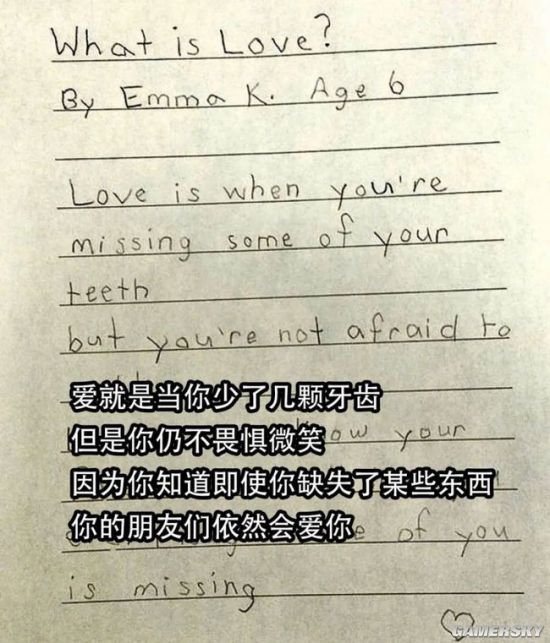 What is Love?
By Emma K. Age 6
Love is when you're
missing some of your
teeth
but you're not afraid to
爱就是当你少了几颗牙齿
但是你仍不畏惧微笑
your
因为你知道即使你缺失了某些东西
你的朋友们依然会爱你
of you
is missing
GAMERSKY